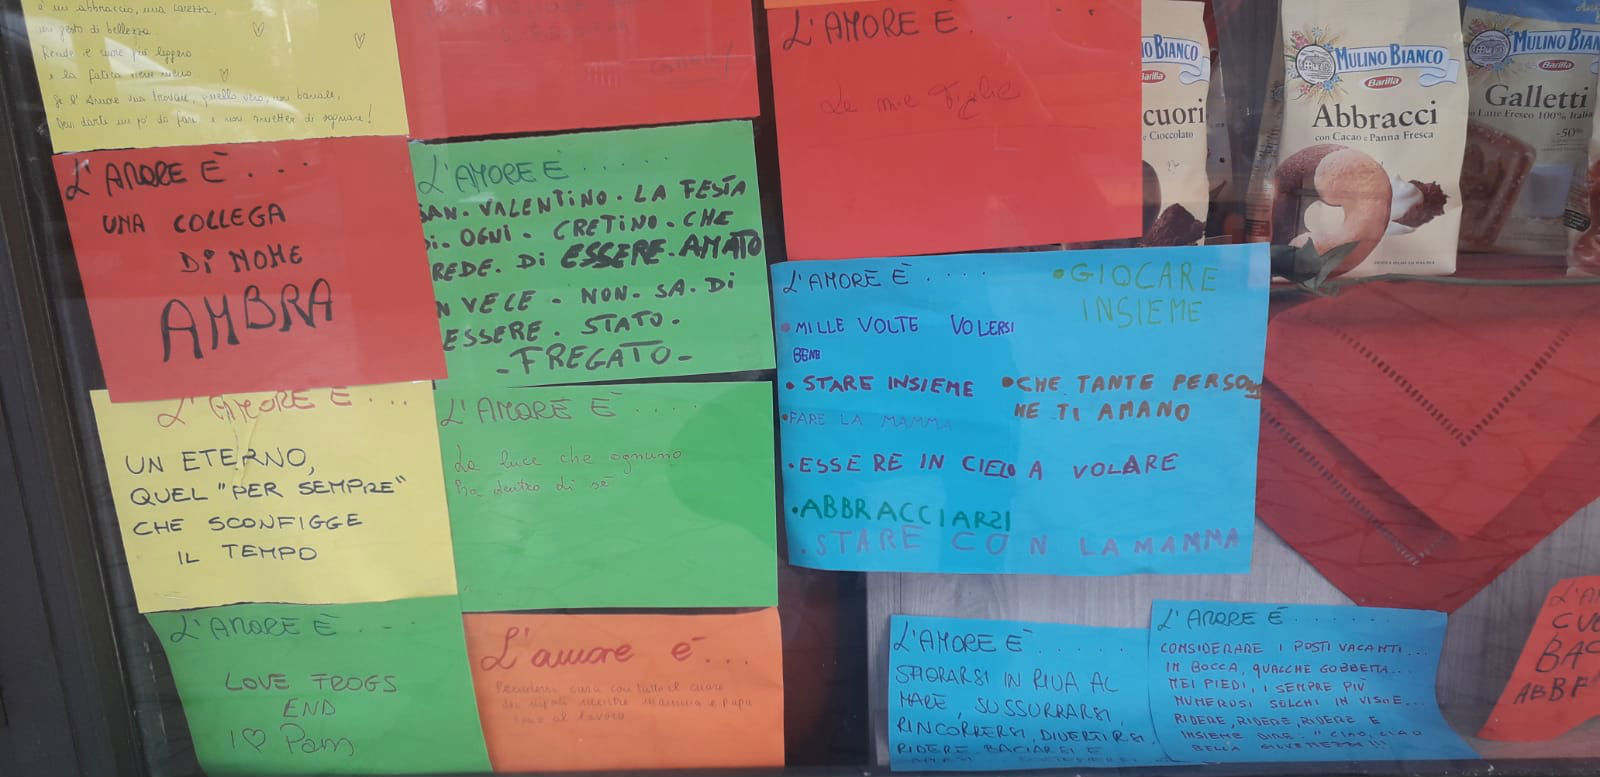 è un abbraccio, una carezza,
un gesto di bellezza.
Rende il cuore più leggero
e la fatica viene meno
Se l'Amore vuoi trovare, quello vero, non banale,
Devi darti un po' da fare e non smetter di sognare!
L'AMORE È...
UNA COLLEGA
DI NOME
AMBRA
L'AMORE È.....
SAN. VALENTINO. LA FESTA
Di. OGNI. CRETINO. CHE
REDE. Di ESSERE. AMATO
NVECE - NON. SA. Di
ESSERE. STATO.
-FREGATO-
L'AMORE È. . . .
Le mie figlie
L'AMORE È...
UN ETERNO,
QUEL "PER SEMPRE"
CHE SCONFIGGE
IL TEMPO
L'AMORE È.....
La luce che ognuno
ha dentro di sé
L'AMORE È....
• GIOCARE
INSIEME
• MILLE VOLTE VOLERSI
BENE
• STARE INSIEME
• CHE TANTE PERSO
NE TI AMANO
• FARE LA MAMMA
• ESSERE IN CIELO A VOLARE
• ABBRACCIARSI
• STARE CON LA MAMMA
L'AMORE È....
LOVE FROGS
END
I ♡ Pam
L'amore è...
Prendersi cura con tutto il cuore
dei nipoti mentre mamma e papà
sono al lavoro
L'AMORE È.....
SFIORARSI IN RIVA AL
MARE, SUSSURRARSI,
RINCORRERSI, DIVERTIRSI,
RIDERE, BACIARSI E
L'AMORE È.......
CONSIDERARE I POSTI VACANTI...
IN BOCCA, QUALCHE GOBBETTA...
NEI PIEDI, I SEMPRE PIÙ
NUMEROSI SOLCHI IN VISO E...
RIDERE, RIDERE, RIDERE E
INSIEME DIRE: "CIAO, CIAO
BELLA GIOVINEZZA!!!
L'A
CU
BAC
ABBR
O BIANCO
Barilla
cuori
e Cioccolato
MULINO BIANCO
Barilla
Abbracci
con Cacao e Panna Fresca
MULINO BIAN
Barilla
Galletti
Latte Fresco 100% Itali
-50%